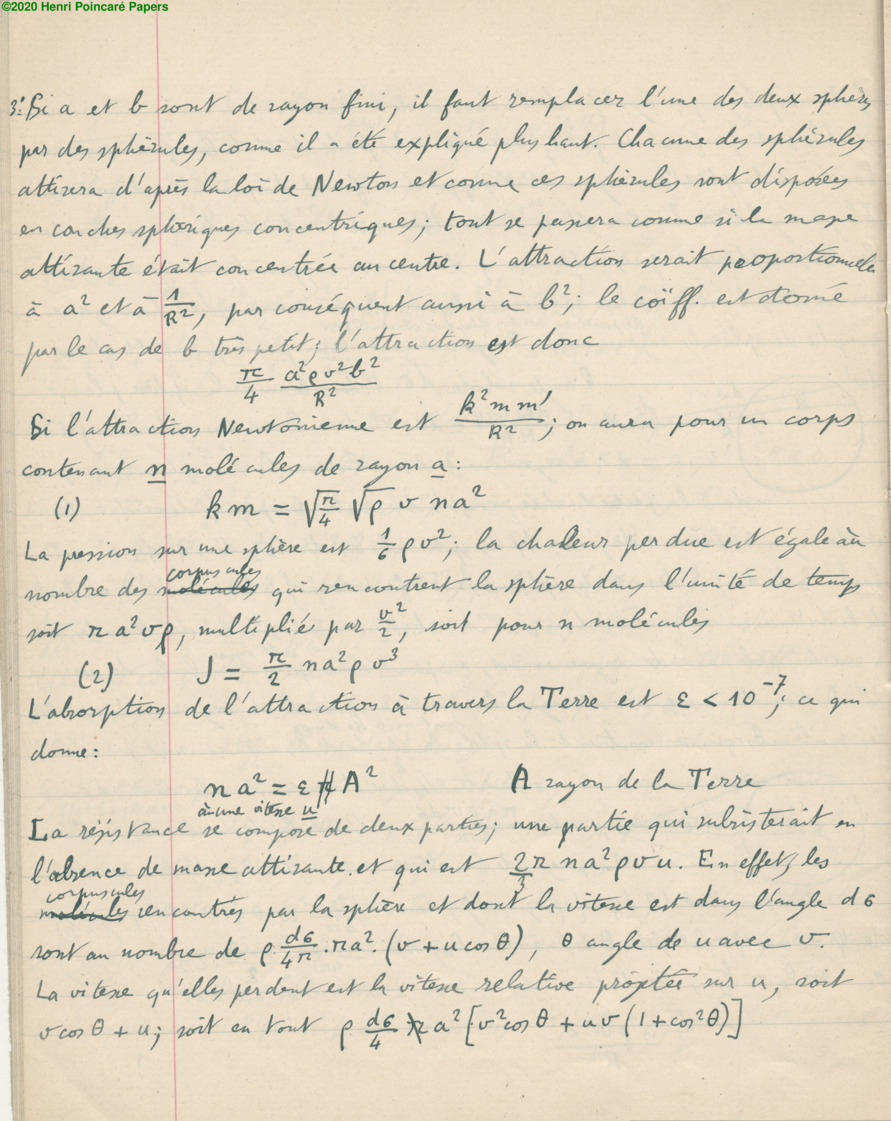 ©2020 Henri Poincaré Papers
3º. Si a et b sont de rayon fini, il faut remplacer l'une des deux sphères
par des sphérules, comme il a été expliqué plus haut. Chacune des sphérules
attirera d'après la loi de Newton et comme ces sphérules sont disposées
en couches sphériques concentriques; tout se passera comme si la masse
attirante était concentrée au centre. L'attraction serait proportionnelle
à a² et à 1/R², par conséquent aussi à b²; le coëff. est donné
par le cas de b très petit; l'attraction est donc
π/4 a²ρv²b²/R²
Si l'attraction Newtonienne est k²mm'/R²; on aura pour un corps
contenant n molécules de rayon a :
(1) km = √(π/4) √ρ v na²
La pression sur une sphère est 1/6 ρv²; la chaleur perdue est égale au
corpuscules
nombre des molécules qui rencontrent la sphère dans l'unité de temps
soit πa²vρ, multiplié par v²/2, soit pour n molécules
(2) J = π/2 na²ρv³
L'absorption de l'attraction à travers la Terre est ε < 10⁻⁷; ce qui
donne :
na² = ε A² A rayon de la Terre
à une vitesse u
La résistance se compose de deux parties; une partie qui subsisterait en
l'absence de masse attirante et qui est 2π/3 na²ρvu. En effet, les
corpuscules
molécules rencontrés par la sphère et dont la vitesse est dans l'angle dσ
sont au nombre de ρ dσ/4π . πa² . (v + u cos θ), θ angle de u avec v.
La vitesse qu'elles perdent est la vitesse relative projetée sur u, soit
v cos θ + u; soit en tout ρ dσ/4 a² [v² cos θ + uv (1 + cos² θ)]